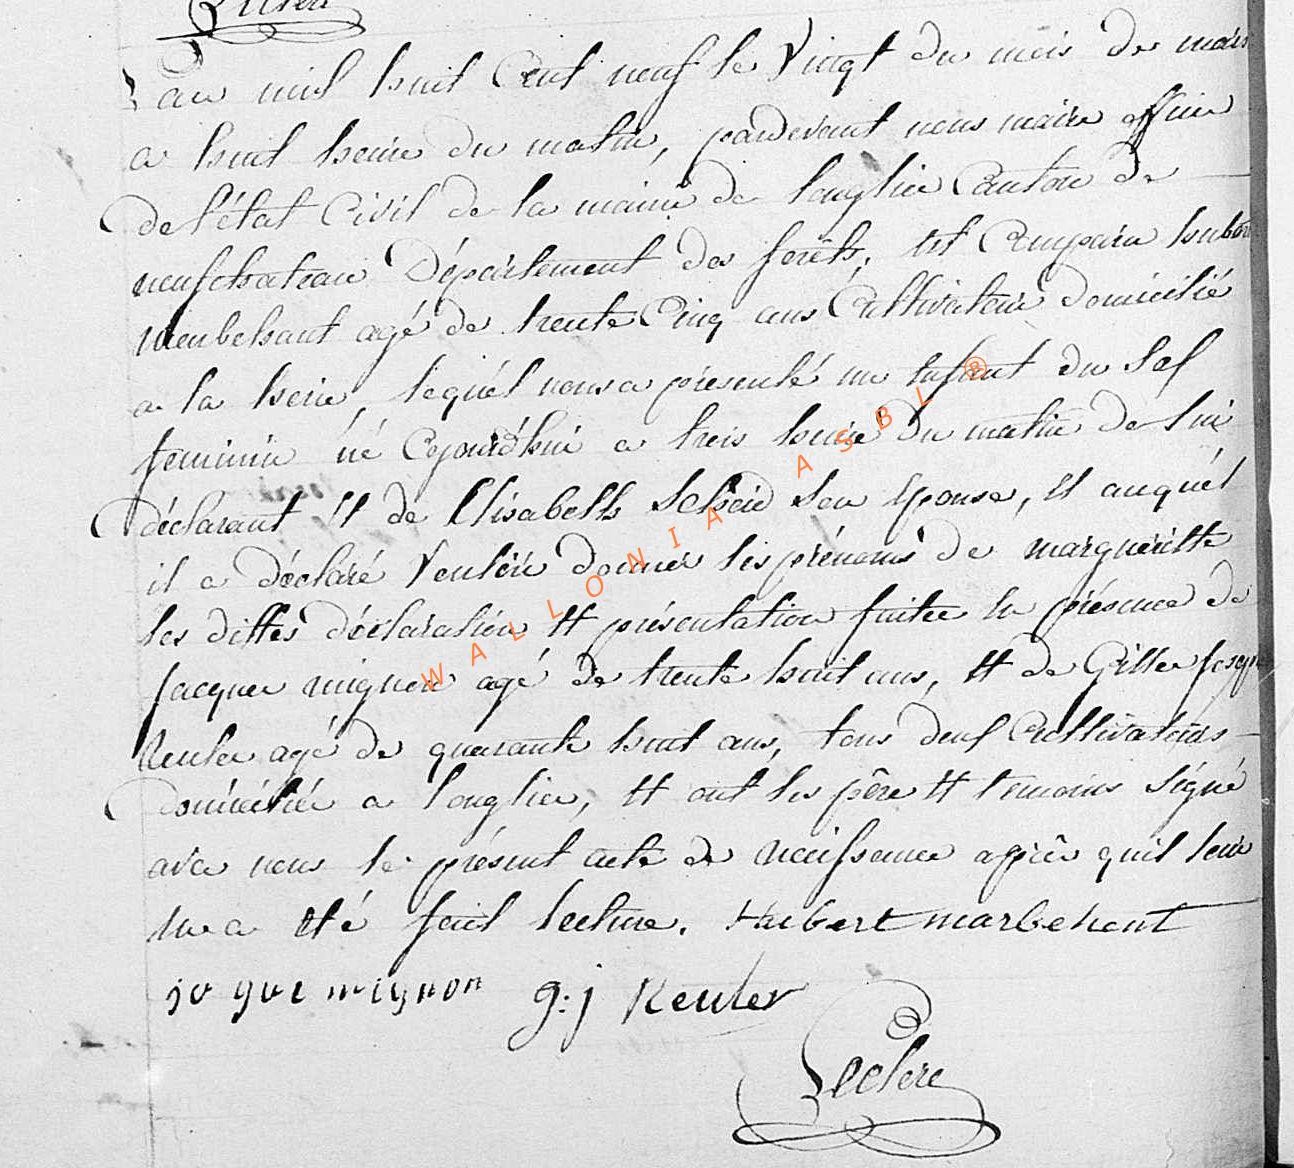 L'an mil huit Cent neuf le Vingt du mois de mars
a huit heure du matin, pardevant nous maire officier
de l'état Civil de la mairie de longlier Canton de
neufchateau Département des forêts, est Comparu hubert
Merbehant agé de trente Cinq ans Cultivateur domicilié
a la herie, lequel nous a présenté un enfant du Sex
feminin né Cejourd'hui a trois heure du matin de lui
déclarant et de Elisabeth Scheid Son Epouse, et auquel
il a déclaré Vouloir donner les prénoms de margueritte
les dittes déclaration et présentation faitte en présence de
Jacque mignon agé de trente huit ans, et de Gille Joseph
Reuler agé de quarante huit ans, tous deux Cultivateurs
domicilié a longlier, et ont les père et temoins Signé
avec nous le présent acte de naissance après quil leur
en a eté fait lecture. Hubert marbehent
jaque mignon g:j Reuler
Leclere
WALLONIA ASBL ®